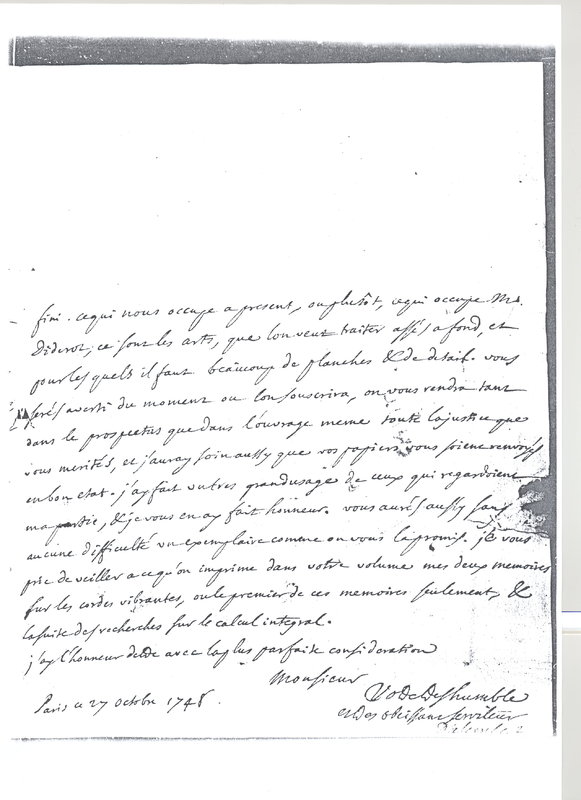 fini. cequi nous occupe a present, ou plutôt, cequi occupe Mr.
Diderot, ce sont les arts, que lon veut traiter assés a fond, et
pour les quels il faut beaucoup de planches & de detail. vous
serés averti du moment ou lon souscrira, on vous rendra tant
dans le prospectus que dans l'ouvrage meme toute la justice que
vous merités, et j'auray soin aussy que vos papiers vous soient renvoyés
en bon etat. j'ay fait un tres grand usage de ceux qui regardoient
ma partie, & je vous en ay fait honneur. vous aurés aussy sans
aucune difficulté un exemplaire comme on vous la promis. je vous
prie de veiller a cequ'on imprime dans votre volume mes deux memoires
sur les cordes vibrantes, ou le premier de ces memoires seulement, &
la suite des recherches sur le calcul integral.
j'ay l'honneur detre avec la plus parfaite consideration
Monsieur
Paris ce 27 octobre 1748.
Votre tres humble
et tres obeissant serviteur